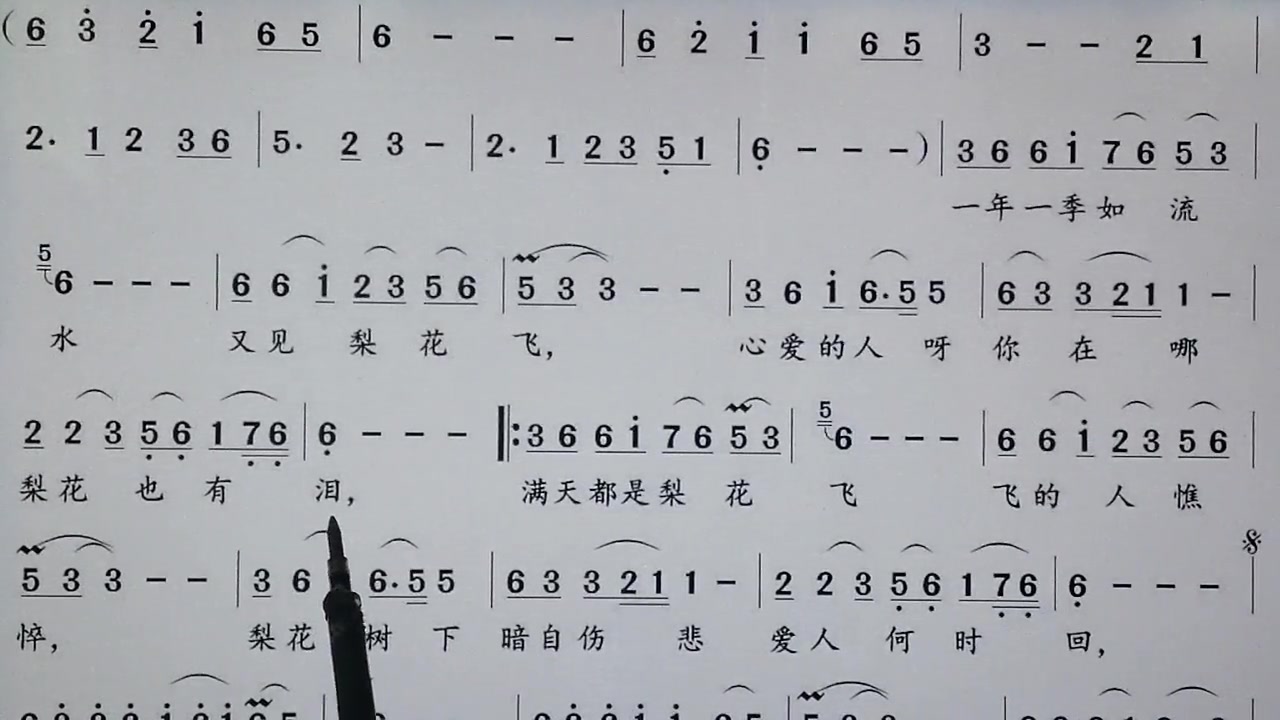 ( 6 3 2 1 6 5 | 6 - - - | 6 2 1 1 6 5 | 3 - - 2 1 |
2· 1 2 3 6 | 5· 2 3 - | 2· 1 2 3 5 1 | 6 - - - ) | 3 6 6 1 7 6 5 3 |
一年一季如 流
5 6 - - - | 6 6 1 2 3 5 6 | 5 3 3 - - | 3 6 1 6·5 5 | 6 3 3 2 1 1 - |
水 又见 梨 花 飞, 心爱的人 呀 你 在 哪
2 2 3 5 6 1 7 6 | 6 - - - |: 3 6 6 1 7 6 5 3 | 5 6 - - - | 6 6 1 2 3 5 6 |
梨花 也 有 泪, 满天都是梨 花 飞 飞的 人 憔
5 3 3 - - | 3 6 6·5 5 | 6 3 3 2 1 1 - | 2 2 3 5 6 1 7 6 | 6 - - - |
悴, 梨花 树 下 暗自伤 悲 爱人 何 时 回,